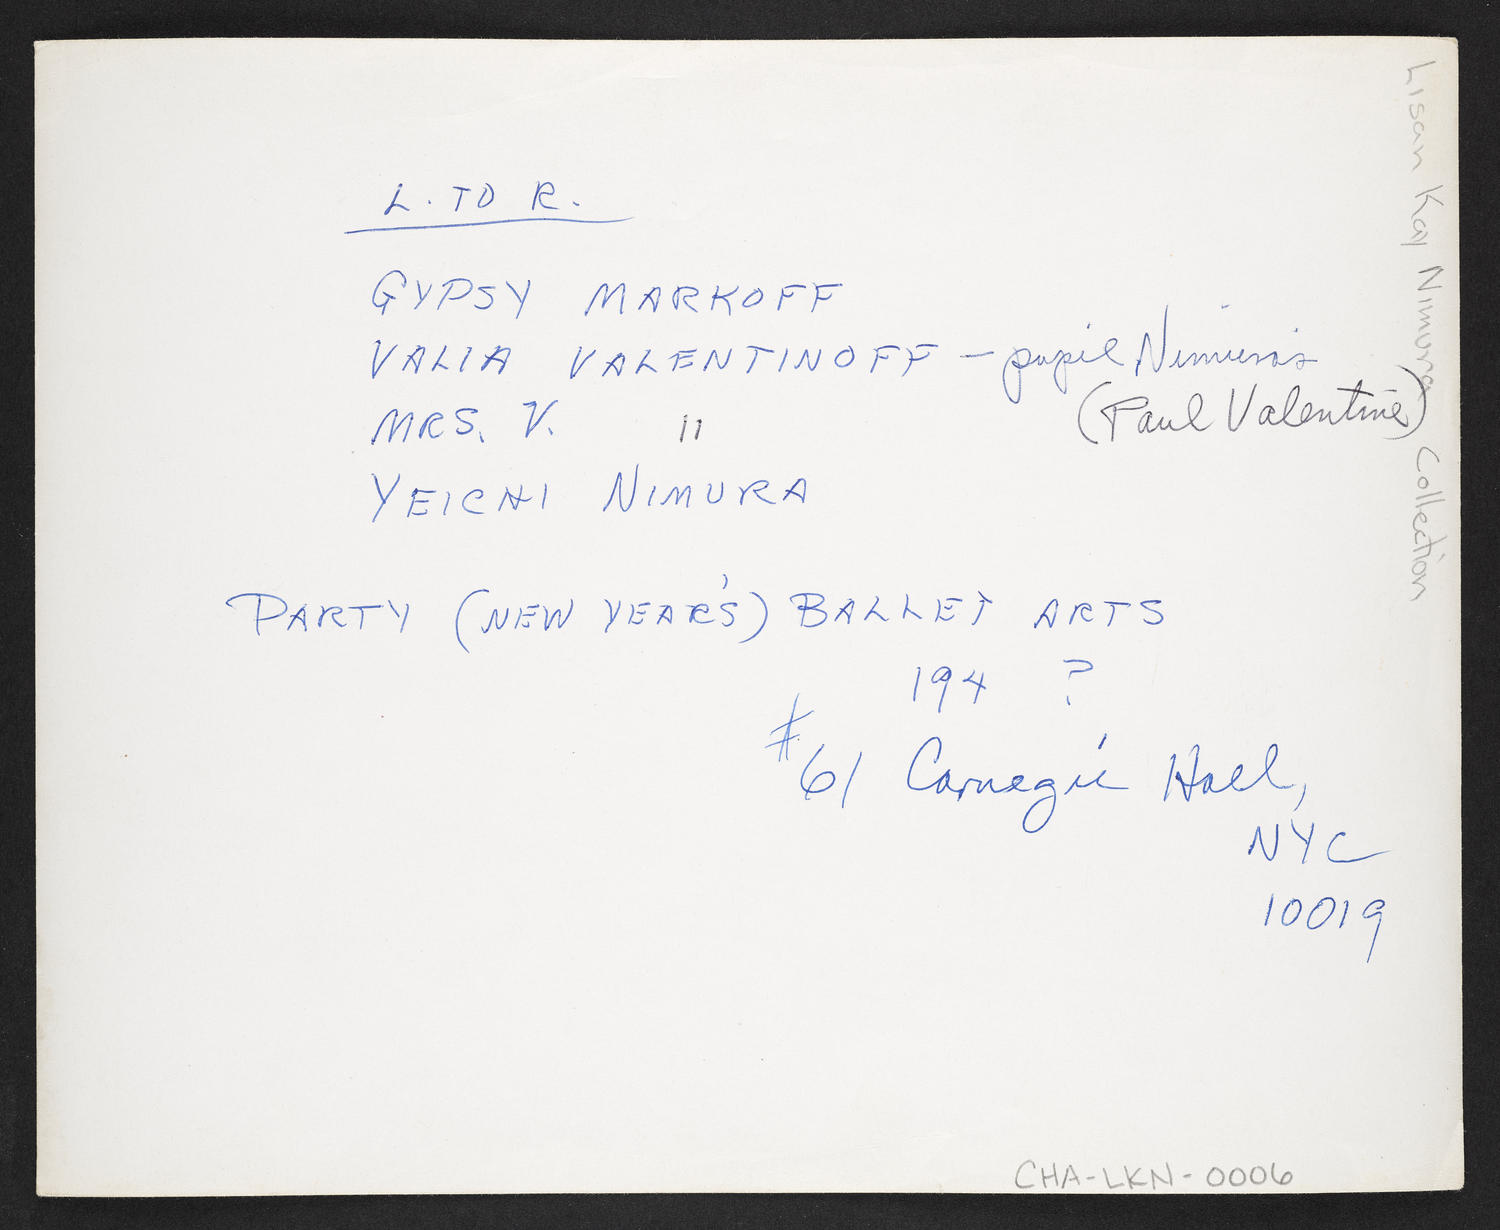 L. TO R.
GYPSY MARKOFF
VALIA VALENTINOFF – pupil Nimura's
(Paul Valentine)
MRS. V. "
YEICHI NIMURA
PARTY (NEW YEAR'S) BALLET ARTS
194 ?
#61 Carnegie Hall,
NYC
10019
Lisan Kay Nimura Collection
CHA-LKN-0006